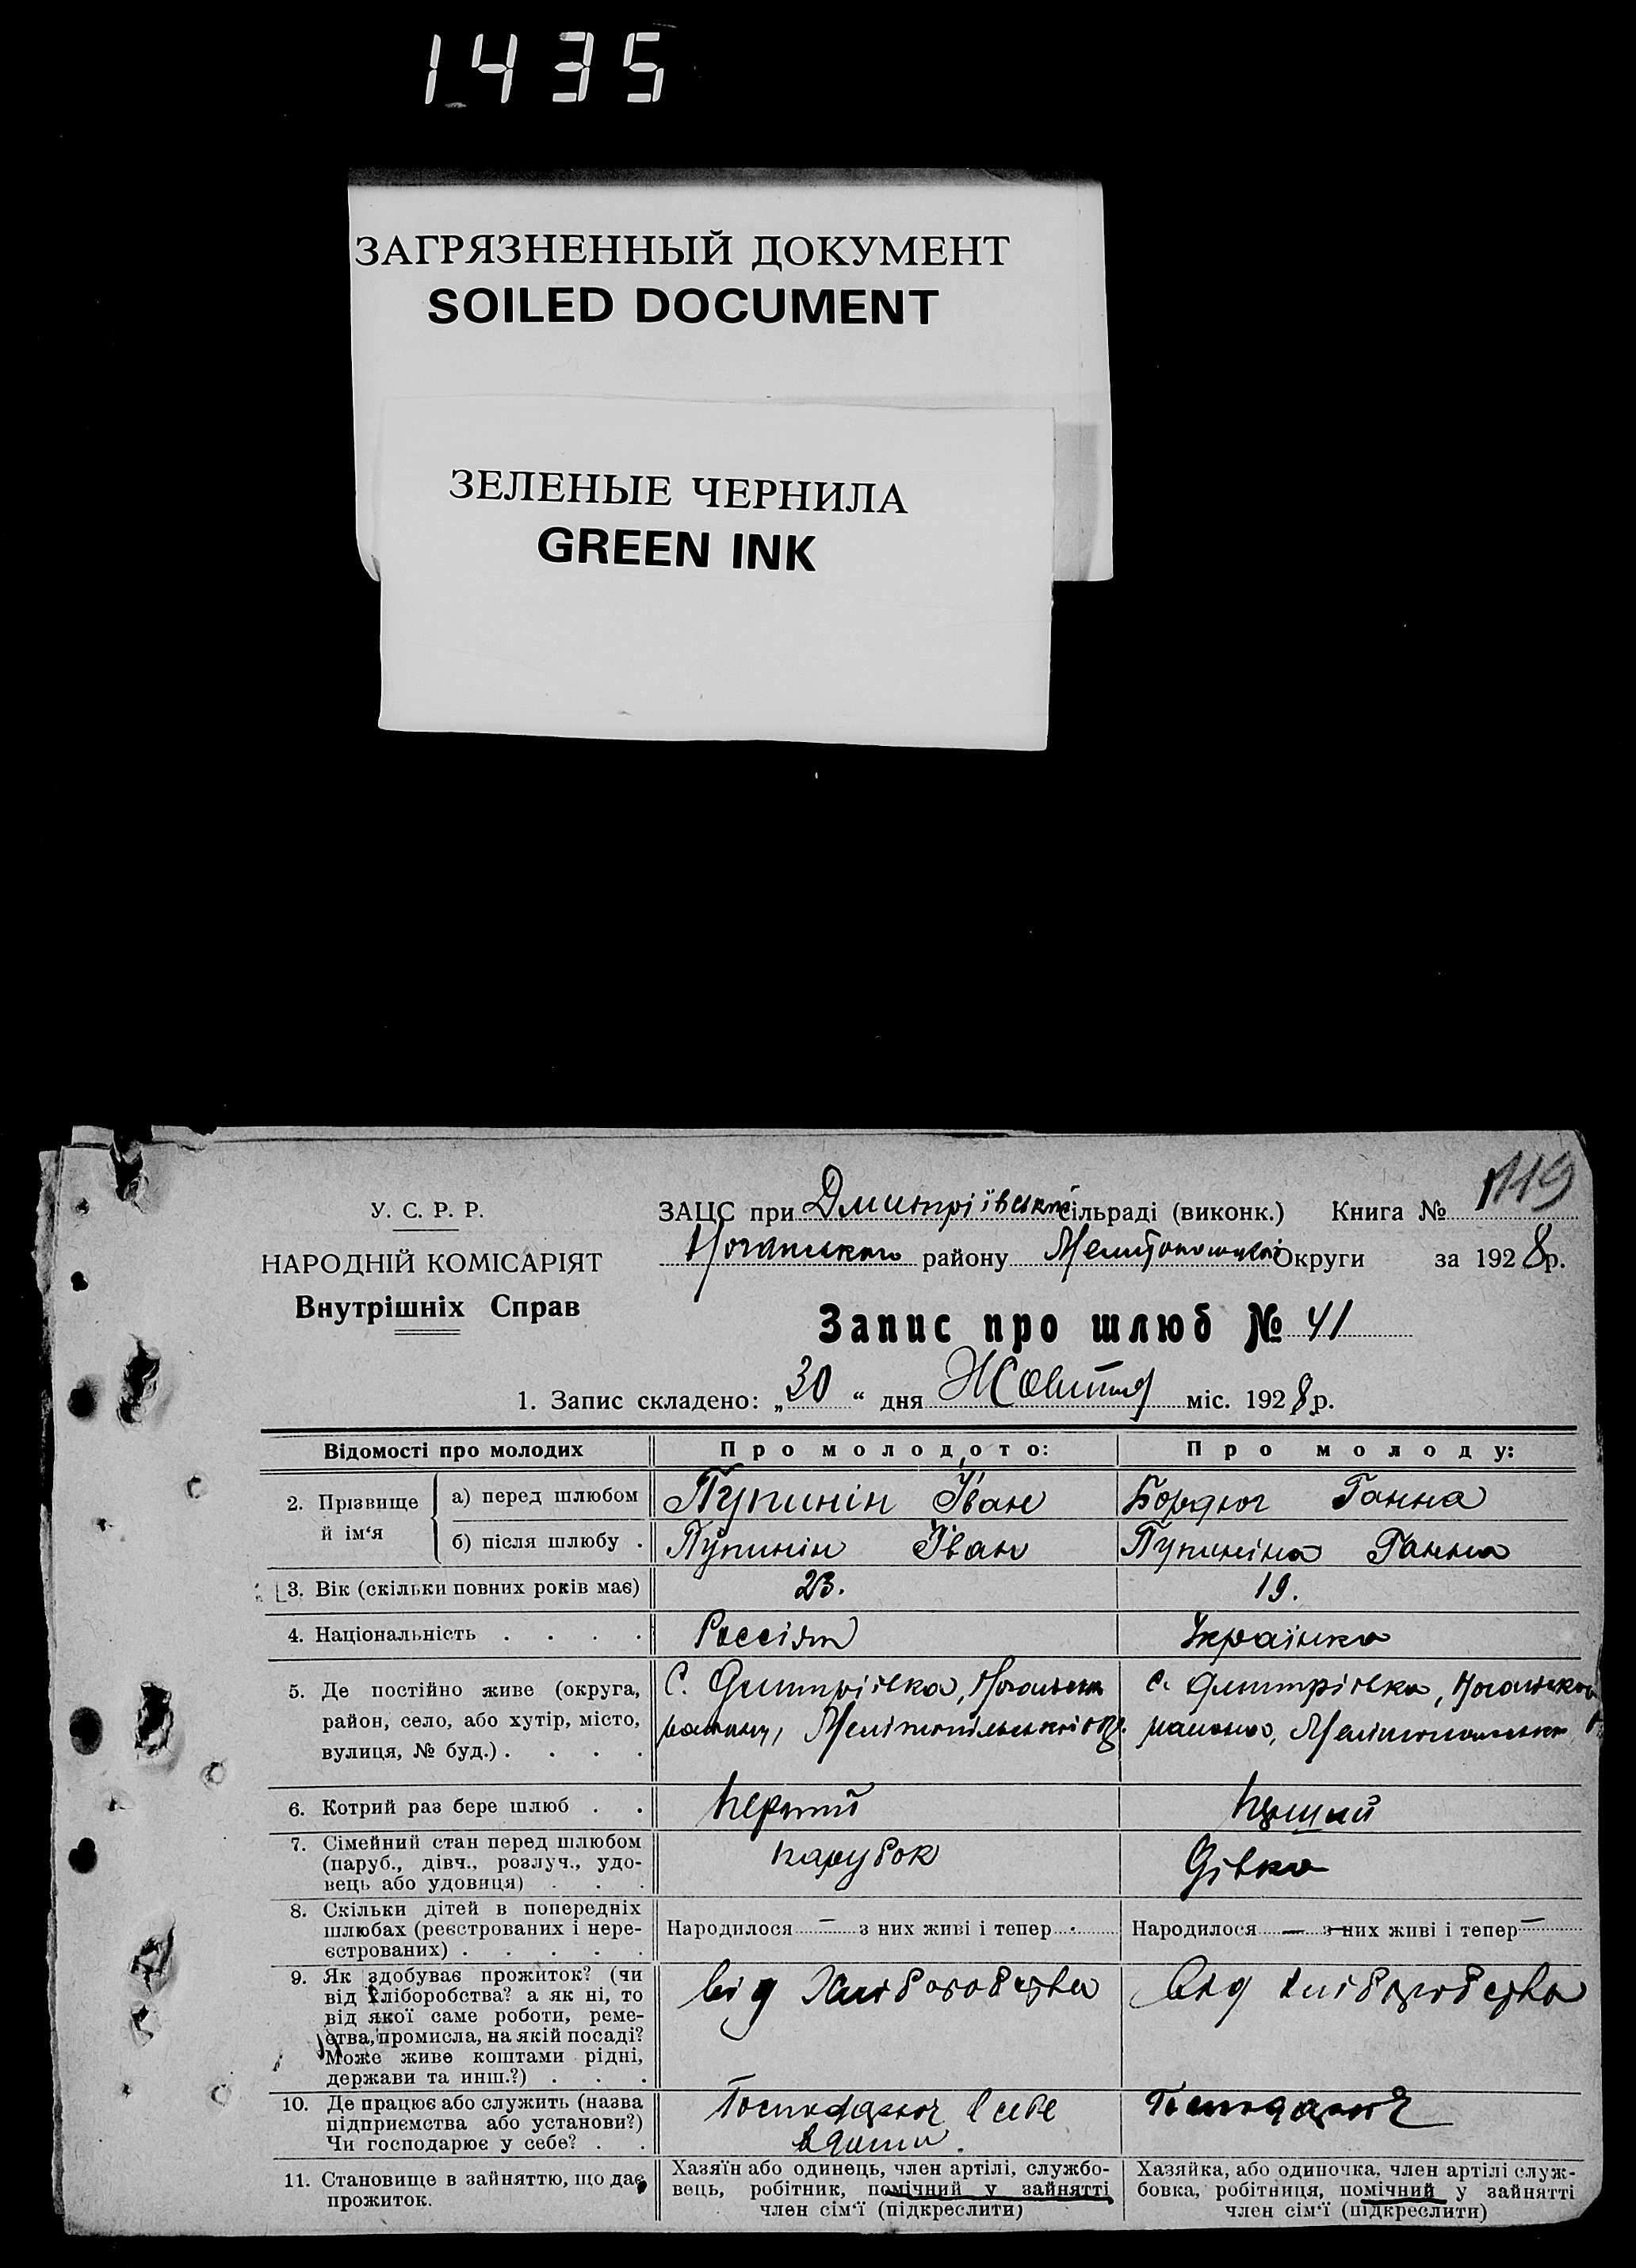 1435
ЗАГРЯЗНЕННЫЙ ДОКУМЕНТ
SOILED DOCUMENT
ЗЕЛЕНЫЕ ЧЕРНИЛА
GREEN INK
119
У. С. Р. Р.
НАРОДНІЙ КОМІСАРІЯТ
Внутрішніх Справ
ЗАЦС при Дмитріївській сільраді (виконк.) Книга №
району Округи за 1928р.
Запис про шлюб № 41
1. Запис складено: „30“ дня Жовтня міс. 1928р.
Відомості про молодих Про молодого: Про молоду:
2. Прізвище й ім‘я
а) перед шлюбом Пупинін Іван Бордюг Ганна
б) після шлюбу . Пупинін Іван Пупиніна Ганна
3. Вік (скільки повних років має) 23. 19.
4. Національність . . . . Россіян Українка
5. Де постійно живе (округа,
район, село, або хутір, місто,
вулиця, № буд.) . . . .
С. Дмитріівка,
с. Дмитріівка,
6. Котрий раз бере шлюб . . перший перший
7. Сімейний стан перед шлюбом
(паруб., дівч., розлуч., удо-
вець або удовиця) . . .
парубок Дівка
8. Скільки дітей в попередніх
шлюбах (реєстрованих і нере-
єстрованих) . . . . .
Народилося — з них живі і тепер . Народилося — з них живі і тепер —
9. Як здобуває прожиток? (чи
від хліборобства? а як ні, то
від якої саме роботи, реме-
ства, промисла, на якій посаді?
Може живе коштами рідні,
держави та инш.?) . . .
від Хліборобства від хліборобства
10. Де працює або служить (назва
підприємства або установи?)
Чи господарює у себе? . .
в себе
11. Становище в зайняттю, що дає
прожиток.
Хазяїн або одинець, член артілі, службо-
вець, робітник, помічний у зайнятті
член сім‘ї (підкреслити)
Хазяйка, або одиночка, член артілі служ-
бовка, робітниця, помічний у зайнятті
член сім‘ї (підкреслити)